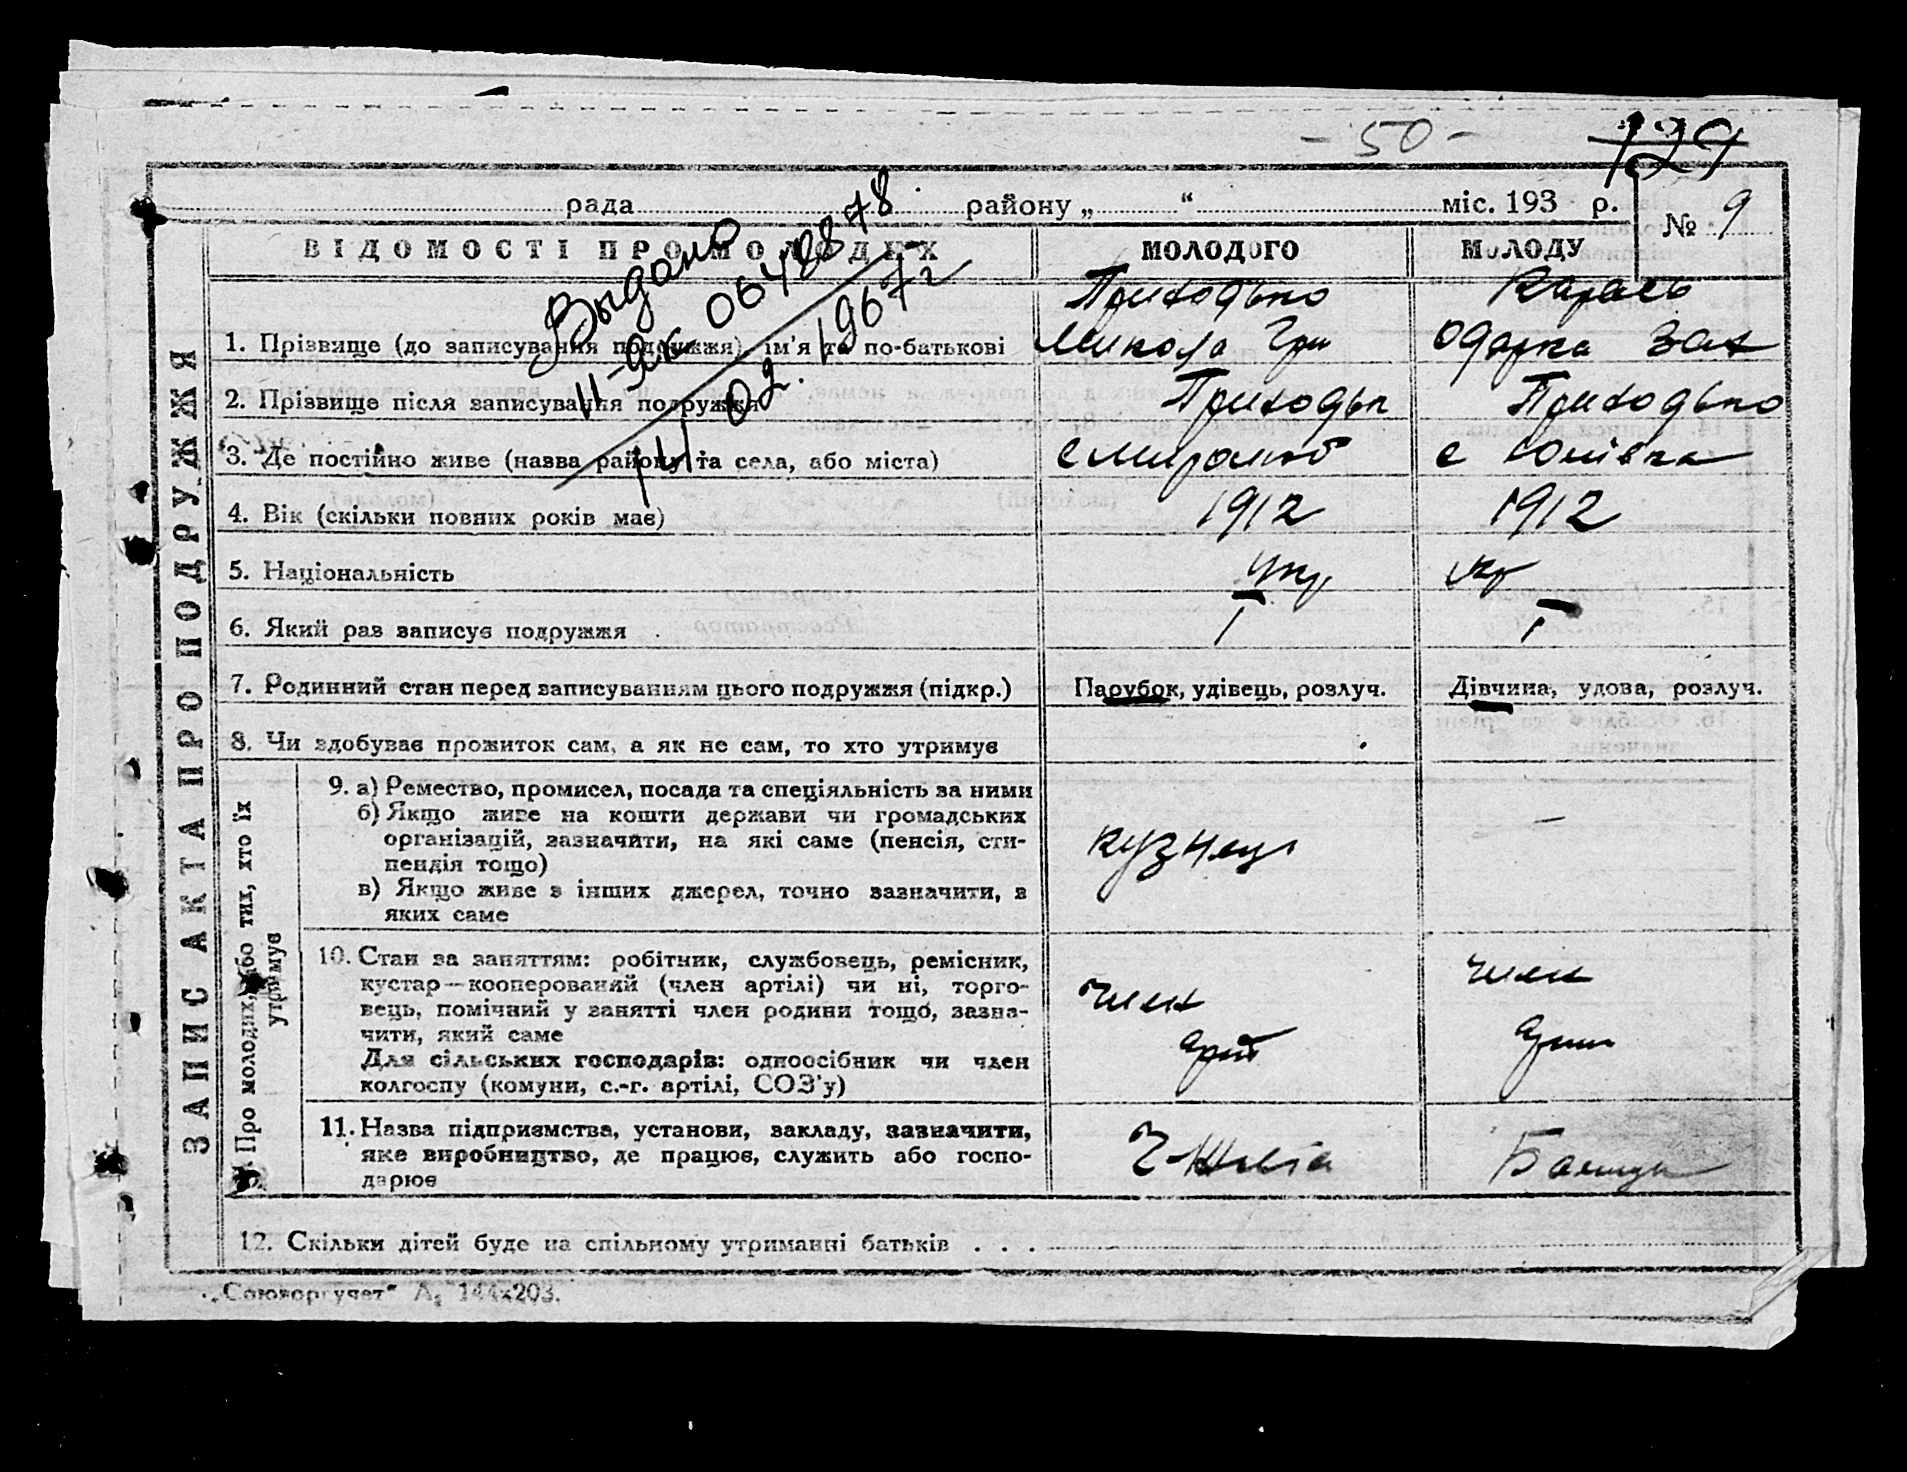 - 50 -
129
рада района „ “ міс. 193 р.
№ 9
ВІДОМОСТІ ПРО МОЛОДИХ
МОЛОДОГО
МОЛОДУ
Выдано
11-ЯК 0648878
14 02. 1967 г
ЗАПИС АКТА ПРО ПОДРУЖЖЯ
1. Прізвище (до записування подружжя) ім'я та по-батькові
Приходько
Микола Гри
Карась
Одарка Зах
2. Прізвище після записування подружжя
Приходьк
Приходько
3. Де постійно живе (назва району та села, або міста)
с
с Юнівка
4. Вік (скільки повних років має)
1912
1912
5. Національність
укр
укр
6. Який раз записує подружжя
I
I
7. Родинний стан перед записуванням цього подружжя (підкр.)
Парубок, удівець, розлуч.
Дівчина, удова, розлуч.
8. Чи здобуває прожиток сам, а як не сам, то хто утримує
Про молодих, або тих, хто їх
утримує
9. а) Ремество, промисел, посада та спеціяльність за ними
б) Якщо живе на кошти держави чи громадських
організацій, зазначити, на які саме (пенсія, сти-
пендія тощо)
в) Якщо живе з інших джерел, точно зазначити, з
яких саме
кузнец
—
10. Стан за заняттям: робітник, службовець, ремісник,
кустар—кооперований (член артілі) чи ні, торго-
вець, помічний у занятті член родини тощо, зазна-
чити, який саме
Для сільських господарів: одноосібник чи член
колгоспу (комуни, с.-г. артілі, СОЗ'у)
член
член
11. Назва підприємства, установи, закладу, зазначити,
яке виробництво, де працює, служить або госпо-
дарює
12. Скільки дітей буде на спільному утриманні батьків . . .
„Союзоргучет" А₅ 144х203.